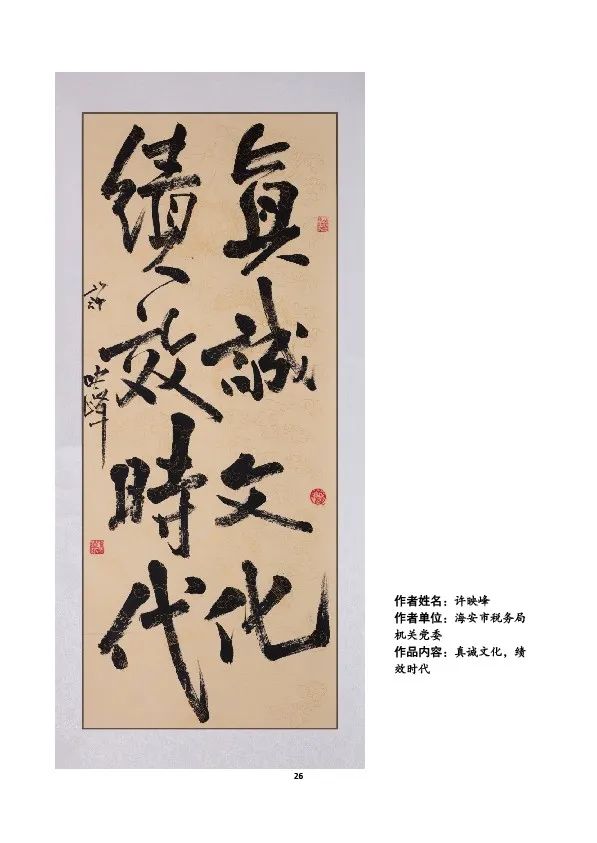 真誠文化
績效時代
许
映峰
作者姓名：许映峰
作者单位：海安市税务局
机关党委
作品内容：真诚文化，绩
效时代
26